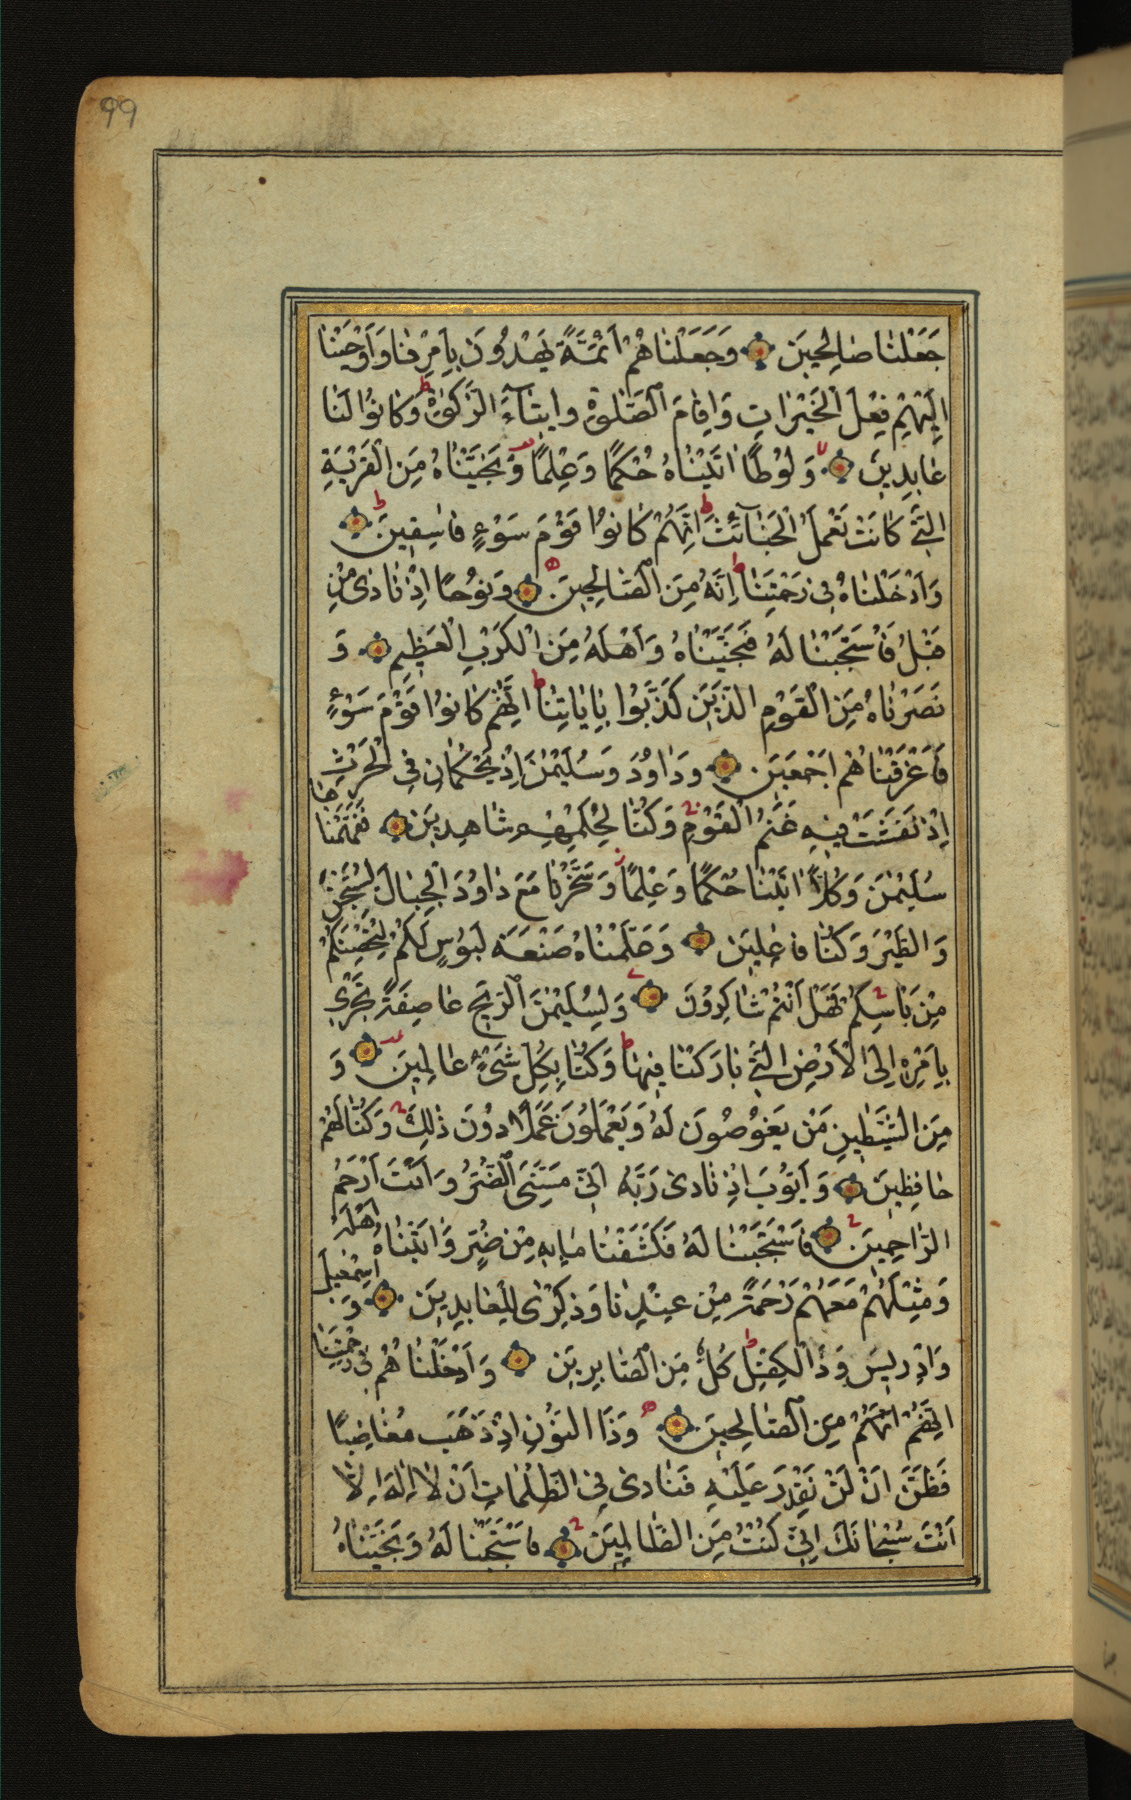 99
جَعَلْنَا صَالِحِينَ وَجَعَلْنَاهُمْ اَئِمَّةً يَهْدُونَ بِاَمْرِنَا وَاَوْحَيْنَا
اِلَيْهِمْ فِعْلَ الْخَيْرَاتِ وَاِقَامَ الصَّلٰوةِ وَاِيتَآءَ الزَّكٰوةِ ط وَكَانُوا لَنَا
عَابِدِينَ وَلُوطًا اٰتَيْنَاهُ حُكْمًا وَعِلْمًا وَنَجَّيْنَاهُ مِنَ الْقَرْيَةِ
الَّتِي كَانَتْ تَعْمَلُ الْخَبَآئِثَ ط اِنَّهُمْ كَانُوا قَوْمَ سَوْءٍ فَاسِقِينَ ط
وَاَدْخَلْنَاهُ فِي رَحْمَتِنَا ط اِنَّهُ مِنَ الصَّالِحِينَ وَنُوحًا اِذْ نَادٰى مِنْ
قَبْلُ فَاسْتَجَبْنَا لَهُ فَنَجَّيْنَاهُ وَاَهْلَهُ مِنَ الْكَرْبِ الْعَظِيمِ وَ
نَصَرْنَاهُ مِنَ الْقَوْمِ الَّذِينَ كَذَّبُوا بِاٰيَاتِنَا ط اِنَّهُمْ كَانُوا قَوْمَ سَوْءٍ
فَاَغْرَقْنَاهُمْ اَجْمَعِينَ وَدَاوُدَ وَسُلَيْمٰنَ اِذْ يَحْكُمَانِ فِي الْحَرْثِ
اِذْ نَفَشَتْ فِيهِ غَنَمُ الْقَوْمِ وَكُنَّا لِحُكْمِهِمْ شَاهِدِينَ فَفَهَّمْنَاهَا
سُلَيْمٰنَ وَكُلًّا اٰتَيْنَا حُكْمًا وَعِلْمًا وَسَخَّرْنَا مَعَ دَاوُدَ الْجِبَالَ يُسَبِّحْنَ
وَالطَّيْرَ وَكُنَّا فَاعِلِينَ وَعَلَّمْنَاهُ صَنْعَةَ لَبُوسٍ لَكُمْ لِيُحْصِنَكُمْ
مِنْ بَاْسِكُمْ فَهَلْ اَنْتُمْ شَاكِرُونَ وَلِسُلَيْمٰنَ الرِّيحَ عَاصِفَةً تَجْرِي
بِاَمْرِهِ اِلَى الْاَرْضِ الَّتِي بَارَكْنَا فِيهَا ط وَكُنَّا بِكُلِّ شَيْءٍ عَالِمِينَ وَ
مِنَ الشَّيٰطِينِ مَنْ يَغُوصُونَ لَهُ وَيَعْمَلُونَ عَمَلًا دُونَ ذٰلِكَ وَكُنَّا لَهُمْ
حَافِظِينَ وَاَيُّوبَ اِذْ نَادٰى رَبَّهُ اَنِّي مَسَّنِيَ الضُّرُّ وَاَنْتَ اَرْحَمُ
الرَّاحِمِينَ فَاسْتَجَبْنَا لَهُ فَكَشَفْنَا مَا بِهِ مِنْ ضُرٍّ وَاٰتَيْنَاهُ اَهْلَهُ
وَمِثْلَهُمْ مَعَهُمْ رَحْمَةً مِنْ عِنْدِنَا وَذِكْرٰى لِلْعَابِدِينَ وَاِسْمٰعِيلَ
وَاِدْرِيسَ وَذَا الْكِفْلِ ط كُلٌّ مِنَ الصَّابِرِينَ وَاَدْخَلْنَاهُمْ فِي رَحْمَتِنَا
اِنَّهُمْ مِنَ الصَّالِحِينَ وَذَا النُّونِ اِذْ ذَهَبَ مُغَاضِبًا
فَظَنَّ اَنْ لَنْ نَقْدِرَ عَلَيْهِ فَنَادٰى فِي الظُّلُمَاتِ اَنْ لَا اِلٰهَ اِلَّا
اَنْتَ سُبْحَانَكَ اِنِّي كُنْتُ مِنَ الظَّالِمِينَ فَاسْتَجَبْنَا لَهُ وَنَجَّيْنَاهُ